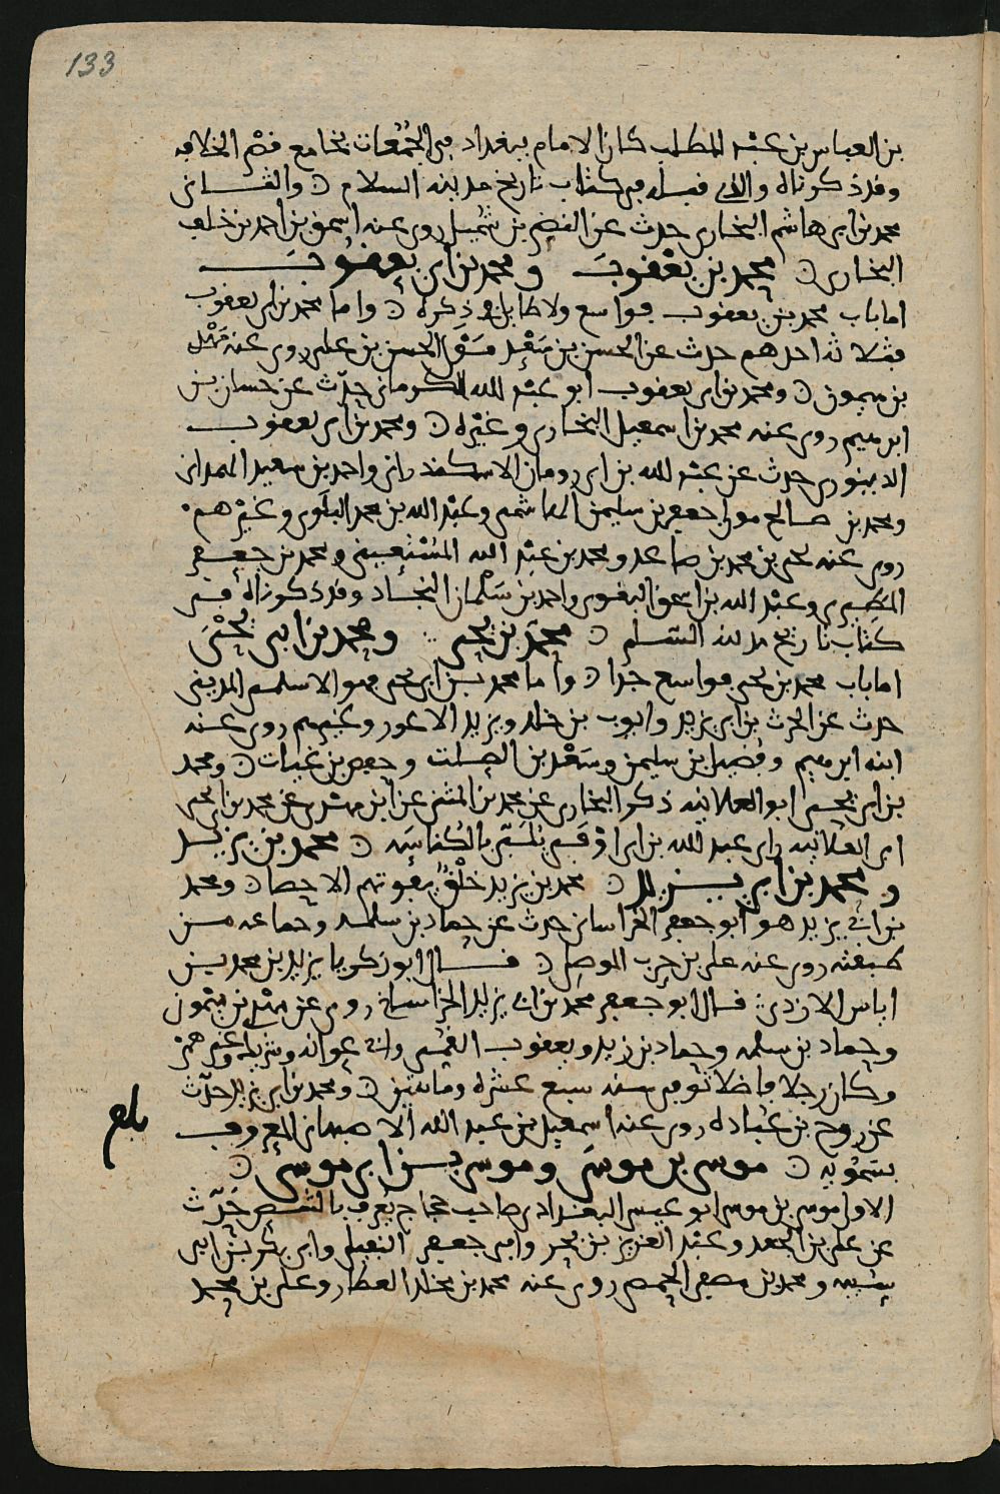 133
بن العباس بن عبد المطلب كان الامام ببغداد في الجمعات بجامع قصر الخلافه
وقد ذكرناه والذي قبله في كتاب تاريخ مدينه السلام ن والثاني
محمد بن ابي هاشم البخاري حدث عن النضر بن شميل روى عنه اسحق بن احمد بن خلف
البخاري ن محمد بن يعقوب و محمد بن ابي يعقوب
اما باب محمد بن يعقوب فواسع ولا طايل في ذكره ن واما محمد بن ابي يعقوب
فثلاثه احدهم حدث عن الحسن بن سعيد الحسن بن علي روى عنه مهدي
بن ميمون ن ومحمد بن ابي يعقوب ابو عبد الله الكرماني حدث عن حسان بن
ابرهيم روى عنه محمد بن اسمعيل البخاري وغيره ن ومحمد بن ابي يعقوب
الدينوري حدث عن عبد الله بن ابي رومان الاسكندراني واحمد بن سعيد الهمداني
ومحمد بن صالح مولى جعفر بن سليمن الهاشمي وعبد الله بن محمد البلوي وغيرهم
روى عنه يحيى بن محمد بن صاعد ومحمد بن عبد الله المستعيني ومحمد بن جعفر
المطيري وعبد الله بن اسحق البغوي واحمد بن سلمان النجاد وقد ذكرناه في
كتاب تاريخ مدينه السلم ن محمد بن يحيى ومحمد بن ابي يحيى
اما باب محمد بن يحيى فواسع جدا ن واما محمد بن ابي يحيى فهو الاسلمي المديني
حدث عن الحرث بن ابي يزيد وايوب بن خالد ويزيد الاعور وغيرهم روى عنه
ابنه ابرهيم وفضيل بن سليمن وسعد بن الصلت وحفص بن غياث ن ومحمد
بن ابي يحيى ابو العلانيه ذكر البخاري عن محمد بن المثنى عن ابن مهدي عن محمد بن ابي يحيى
ابي العلانيه راى عبد الله بن ابي اوفى بالكناسه ن محمد بن يزيد
و محمد بن ابي يزيد ن محمد بن يزيد خلق يفوتهم الاحصا ن ومحمد
بن ابي يزيد هو ابو جعفر الخراساني حدث عن حماد بن سلمه وجماعه من
طبقته روى عنه علي بن حرب الموصلي ن قال ابو زكريا يزيد بن محمد بن
اياس الازدي قال ابو جعفر محمد بن ابي يزيد الخراساني روى عن مهدي بن ميمون
وحماد بن سلمه وحماد بن زيد ويعقوب القمي وابي عوانه وشريك وغيرهم
وكان رجلا فاضلا توفي سنه سبع عشره ومائتين ن ومحمد بن ابي يزيد حدث
عن روح بن عباده روى عنه اسمعيل بن عبد الله الاصبهاني المعروف
بسمويه ن موسى بن موسى وموسى بن ابي موسى ن
بلغ
الاول موسى بن موسى ابو عيسى البغدادي صاحب حجاج يعرف بالشص حدث
عن علي بن الجعد وعبد العزيز بن بحر وابي جعفر النفيلي وابي بكر بن ابي
شيبه ومحمد بن مصفى الحمصي روى عنه محمد بن مخلد العطار وعلي بن محمد